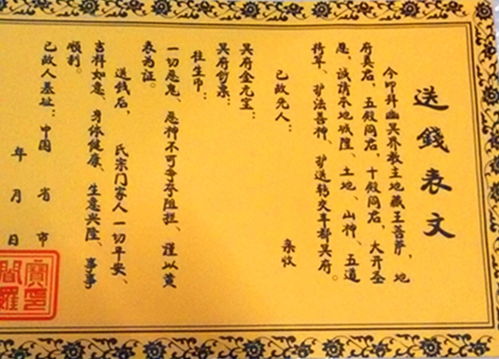 送錢表文
今叩拜幽冥界教主地藏王菩萨，地
府真君，五殿阎君，十殿阎君，大开圣
恩，诚请本地城隍、土地、山神、五道
将军、驴法善神，驴送转交丰都冥府。
已故先人： 亲收
冥府金元宝：
冥府钞票：
往生币：
一切恶鬼、恶神不可等夺阻拦，谨以黄
表为证。
送钱后， 氏宗门家人一切平安、
吉祥如意、身体健康、生意兴隆、事事
顺利。
已故人墓址：中国 省 市
年 月 日
寶
閻羅